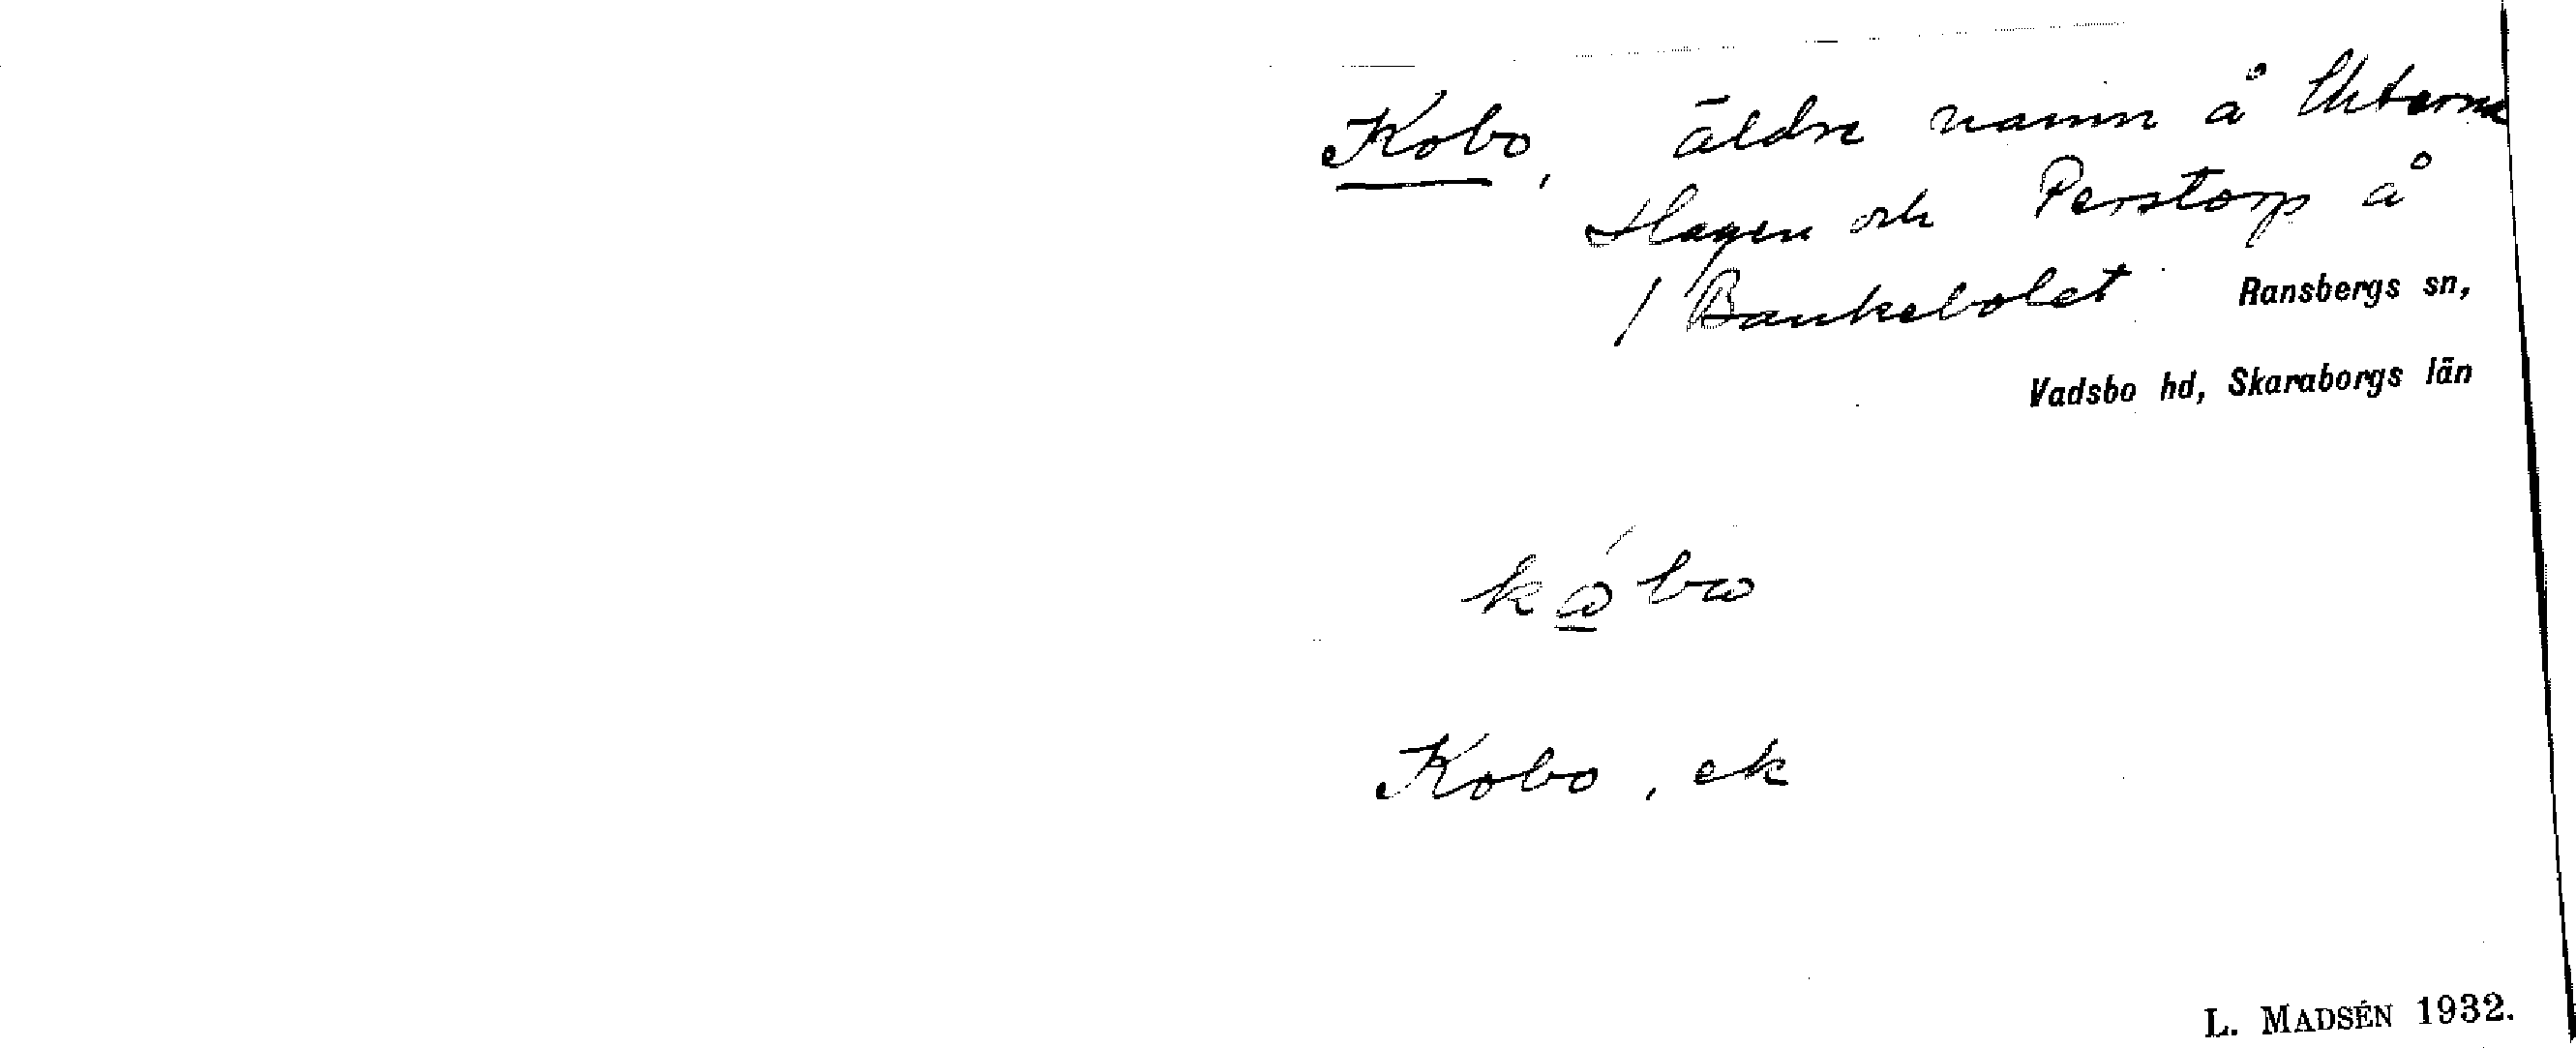 Kobo, äldre namn å lht:erna
Hagen och Perstorp å
/ Bankebolet Ransbergs sn,
Vadsbo hd, Skaraborgs län
Kobo, ek
L. MADSÉN 1932.